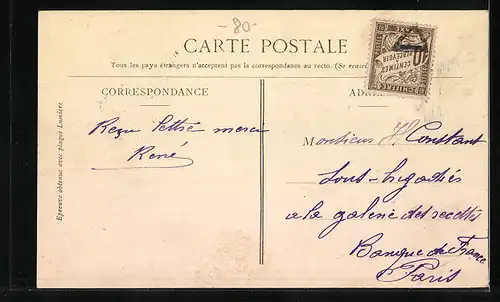 -80-
CARTE POSTALE
Tous les pays étrangers n'acceptent pas la correspondance au recto. (Se rensei
CORRESPONDANCE
ADRE
Reçu lettre merci
René
Monsieur H. Constant
Sous-brigadier
à la galerie des recettes
Banque de France
Paris
Epreuve obtenue avec plaque Lumière
10
CENTIMES
A PERCEVOIR
CHIFFRE
TAXE